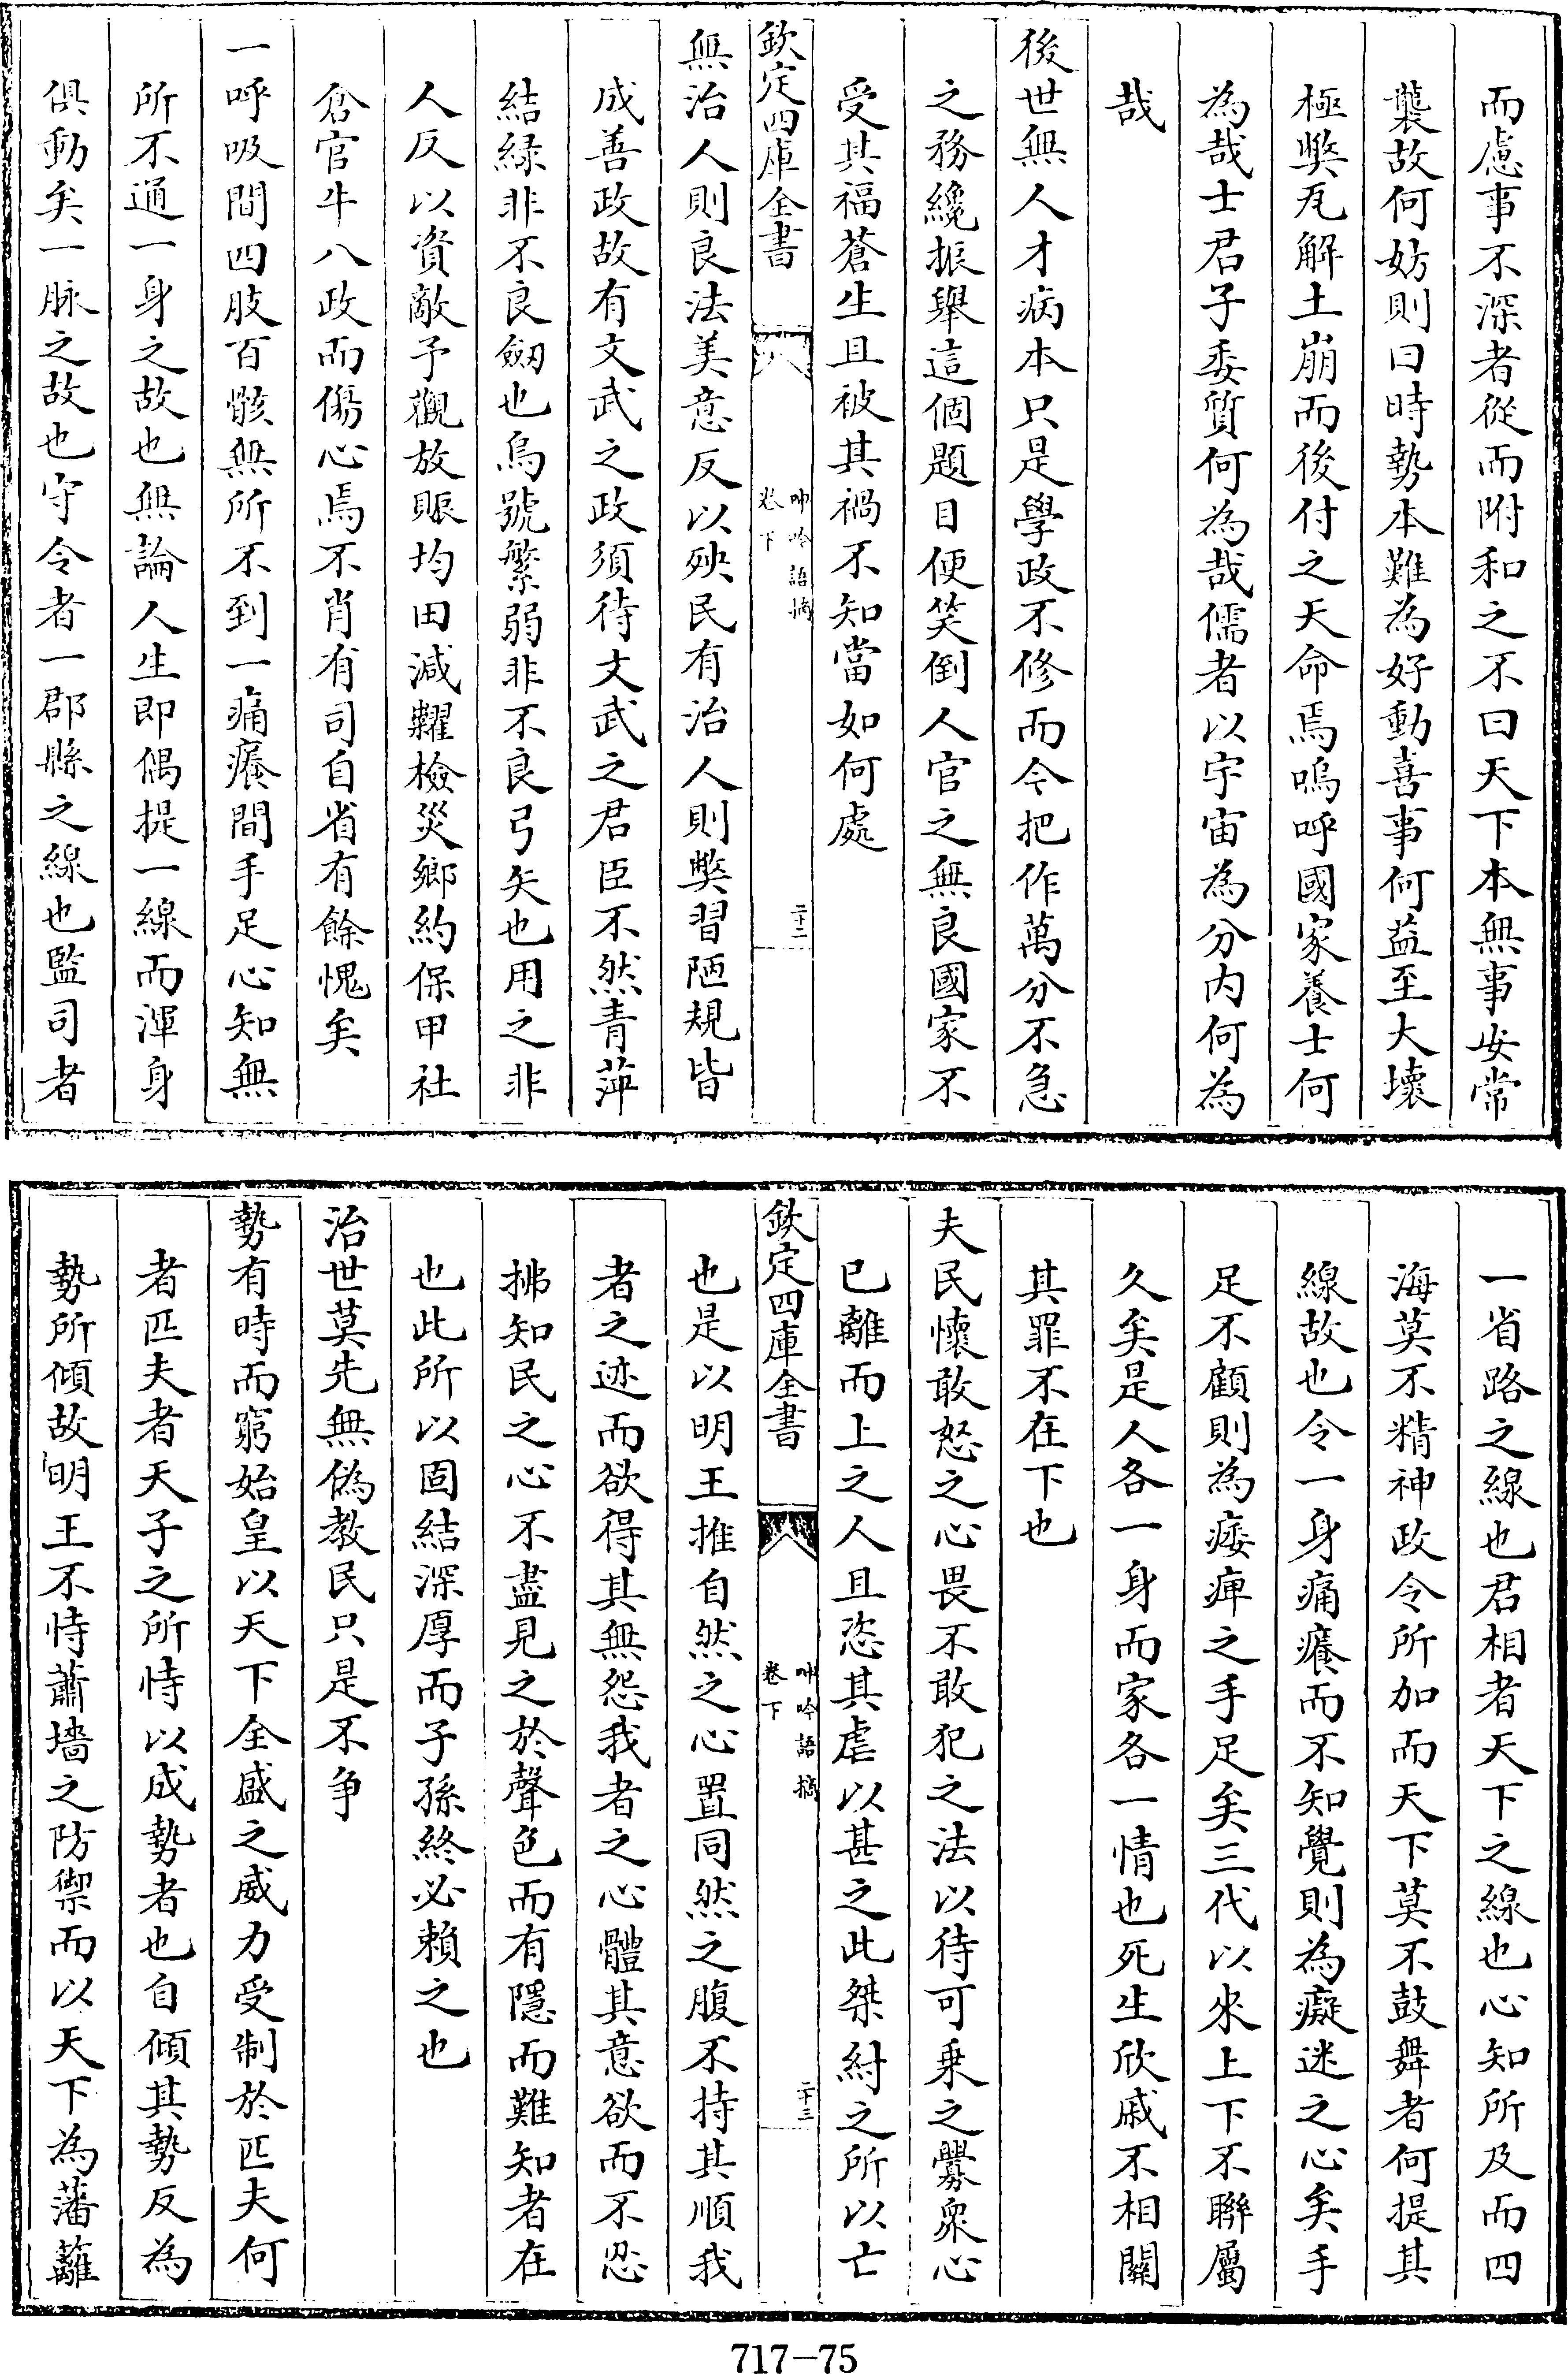 而慮事不深者從而附和之不曰天下本無事安常
襲故何妨則曰時勢本難為好動喜事何益至大壞
極獘瓦解土崩而後付之天命焉嗚呼國家養士何
為哉士君子委質何為哉儒者以宇宙為分内何為
哉
後世無人才病本只是學政不修而今把作萬分不急
之務纔振舉這個題目便笑倒人官之無良國家不
受其福蒼生且被其禍不知當如何處
欽定四庫全書
呻吟語摘
卷下
二十二
無治人則良法美意反以殃民有治人則獘習陋規皆
成善政故有文武之政須待文武之君臣不然青萍
結緑非不良劒也烏號繁弱非不良弓矢也用之非
人反以資敵予觀放賑均田減糶檢災鄉約保甲社
倉官牛八政而傷心焉不肖有司自省有餘愧矣
一呼吸間四肢百骸無所不到一痛癢間手足心知無
所不通一身之故也無論人生即偶提一線而渾身
俱動矣一脉之故也守令者一郡縣之線也監司者
一省路之線也君相者天下之線也心知所及而四
海莫不精神政令所加而天下莫不鼓舞者何提其
線故也令一身痛癢而不知覺則為癡迷之心矣手
足不顧則為痿痺之手足矣三代以來上下不聯屬
久矣是人各一身而家各一情也死生欣戚不相關
其罪不在下也
夫民懷敢怒之心畏不敢犯之法以待可乗之釁衆心
已離而上之人且恣其虐以甚之此桀紂之所以亡
欽定四庫全書
呻吟語摘
卷下
二十三
也是以明王推自然之心置同然之腹不持其順我
者之迹而欲得其無怨我者之心體其意欲而不忍
拂知民之心不盡見之於聲色而有隱而難知者在
也此所以固結深厚而子孫終必賴之也
治世莫先無偽教民只是不争
勢有時而窮始皇以天下全盛之威力受制於匹夫何
者匹夫者天子之所恃以成勢者也自傾其勢反為
勢所傾故明王不恃蕭墻之防禦而以天下為藩籬
717-75